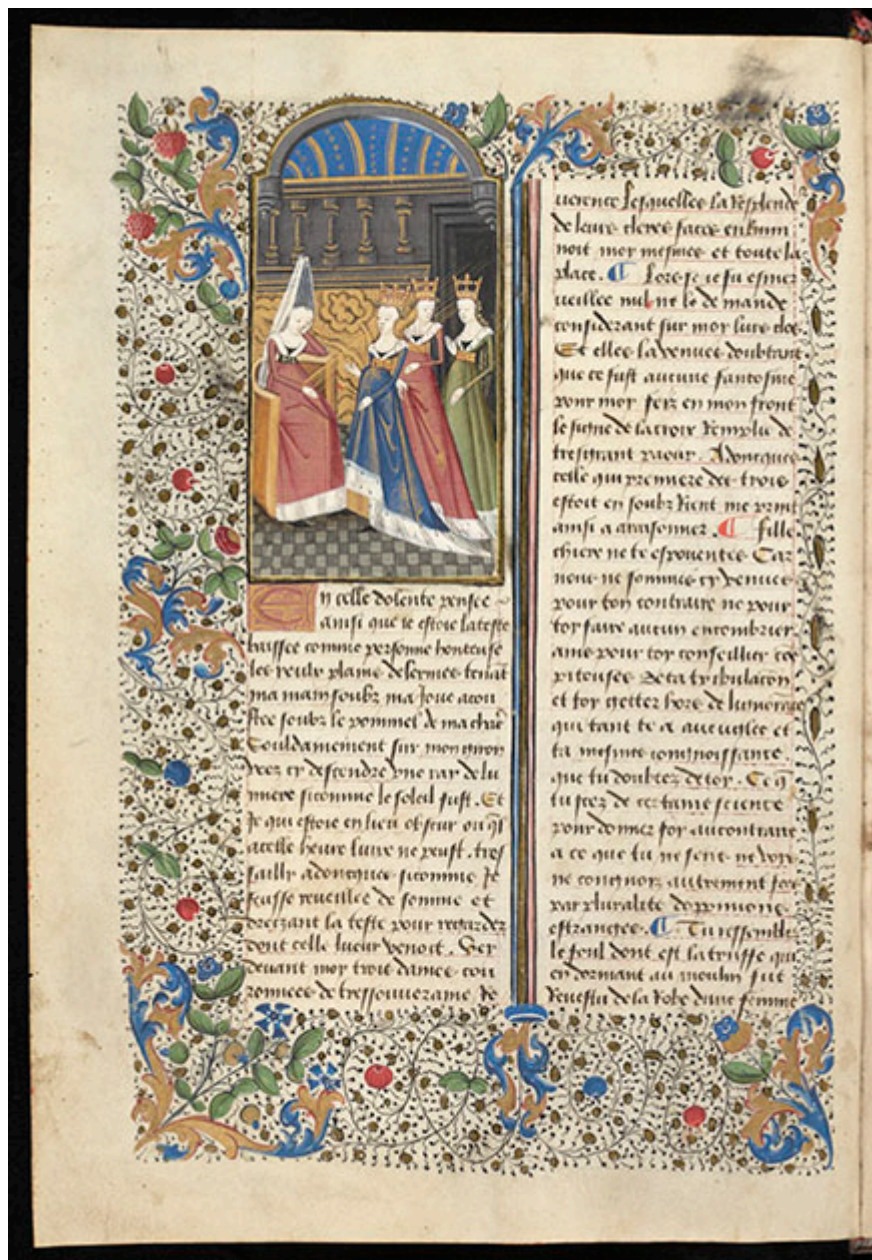 En celle dolente pensee
ainsi que ie estoie la teste
baissee comme personne honteuse
les yeulx plains de lermes tenāt
ma main soubz ma Joue acou
stee soubz le pommel de ma chaē
Souldainement sur mon giron
veez cy descendre vne ray de lu
miere si comme le soleil fust. Et
Je qui estoie en lieu obscur ou ql
a celle heure luire ne peust. tres
sailly adoncques si comme Je
feusse reueillee de somme et
drecant la teste pour regarder
dont celle lueur venoit. Vey
deuant moy trois dames cou
ronnees de tressouueraine Re
uerence Lesquelles la Resplende
de leurs cleres faces enlumi
noit moy mesmes et toute la
place. Lors se ie fu esmer
ueillee nul ne le demande
considerant sur moy luis clos
Et elles la venues doubtant
que ce fust aucune fantosme
pour moy feiz en mon front
le signe de la croix Remplie de
tresgrant paour. Adoncques
celle qui premiere des trois
estoit en soubz Riant me print
ainsi a araisonner. Fille
chiere ne te espouentes Car
nous ne sommes cy venues
pour ton contraire ne pour
toy faire aucun encombrier
ains pour toy conseillier
piteuses de ta tribulacōn
et toy getter hors de
qui tant te a aueuglee et
ta mesme congnoissance
que tu doubtes de toy. Ce q̄
tu scez de certaine science
pour donner foy au contraire
a ce que tu ne sens ne vois
ne congnois autrement fors
par pluralite doppinions
estranges. Tu ressembles
le foul dont est la truffe qui
en dormant au moulin fut
Reuestu de la Robe dune femme